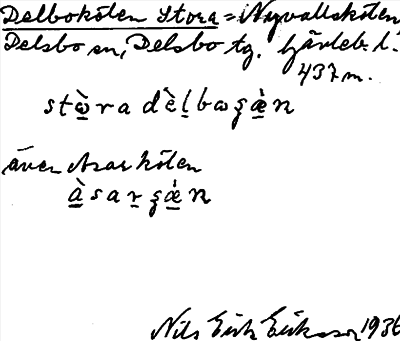 Delboköten Stora = Nyvallsköten
Delsbo sn, Delsbo tg. Gävleb. l.
437 m.
stɷ̀ra dɛ̀lbɷʂæ̀n
även Asarköten
àsarʂæ̀n
Nils Erik Eriksson 1936